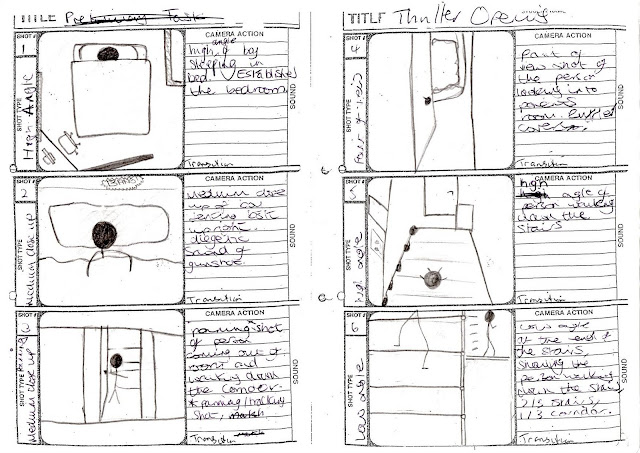 TITLE Preliminary Task
SHOT # 1
SHOT TYPE High Angle
CAMERA ACTION
high angle of boy
sleeping in
bed. Establishes
the bedroom
SOUND
Transition
SHOT # 2
SHOT TYPE Medium close up
CAMERA ACTION
medium close
up of boy
bolt
upright.
diegetic
sound of
gunshot.
SOUND
Transition
SHOT # 3
SHOT TYPE Medium close up
CAMERA ACTION
panning shot
of person
coming out of
room and
walking down
the corridor.
* panning/tracking
shot,
SOUND
Transition
TITLE Thriller Opening
SHOT # 4
SHOT TYPE Point of view
CAMERA ACTION
point of
view shot of
the person
looking into
parents
room.
SOUND
Transition
SHOT # 5
SHOT TYPE high angle
CAMERA ACTION
high angle of
person walking
down the
stairs
SOUND
Transition
SHOT # 6
SHOT TYPE Low angle
CAMERA ACTION
Low angle
at the end of
the stairs,
showing the
person walking
down the stairs,
2/3 stairs,
1/3 corridor.
SOUND
Transition